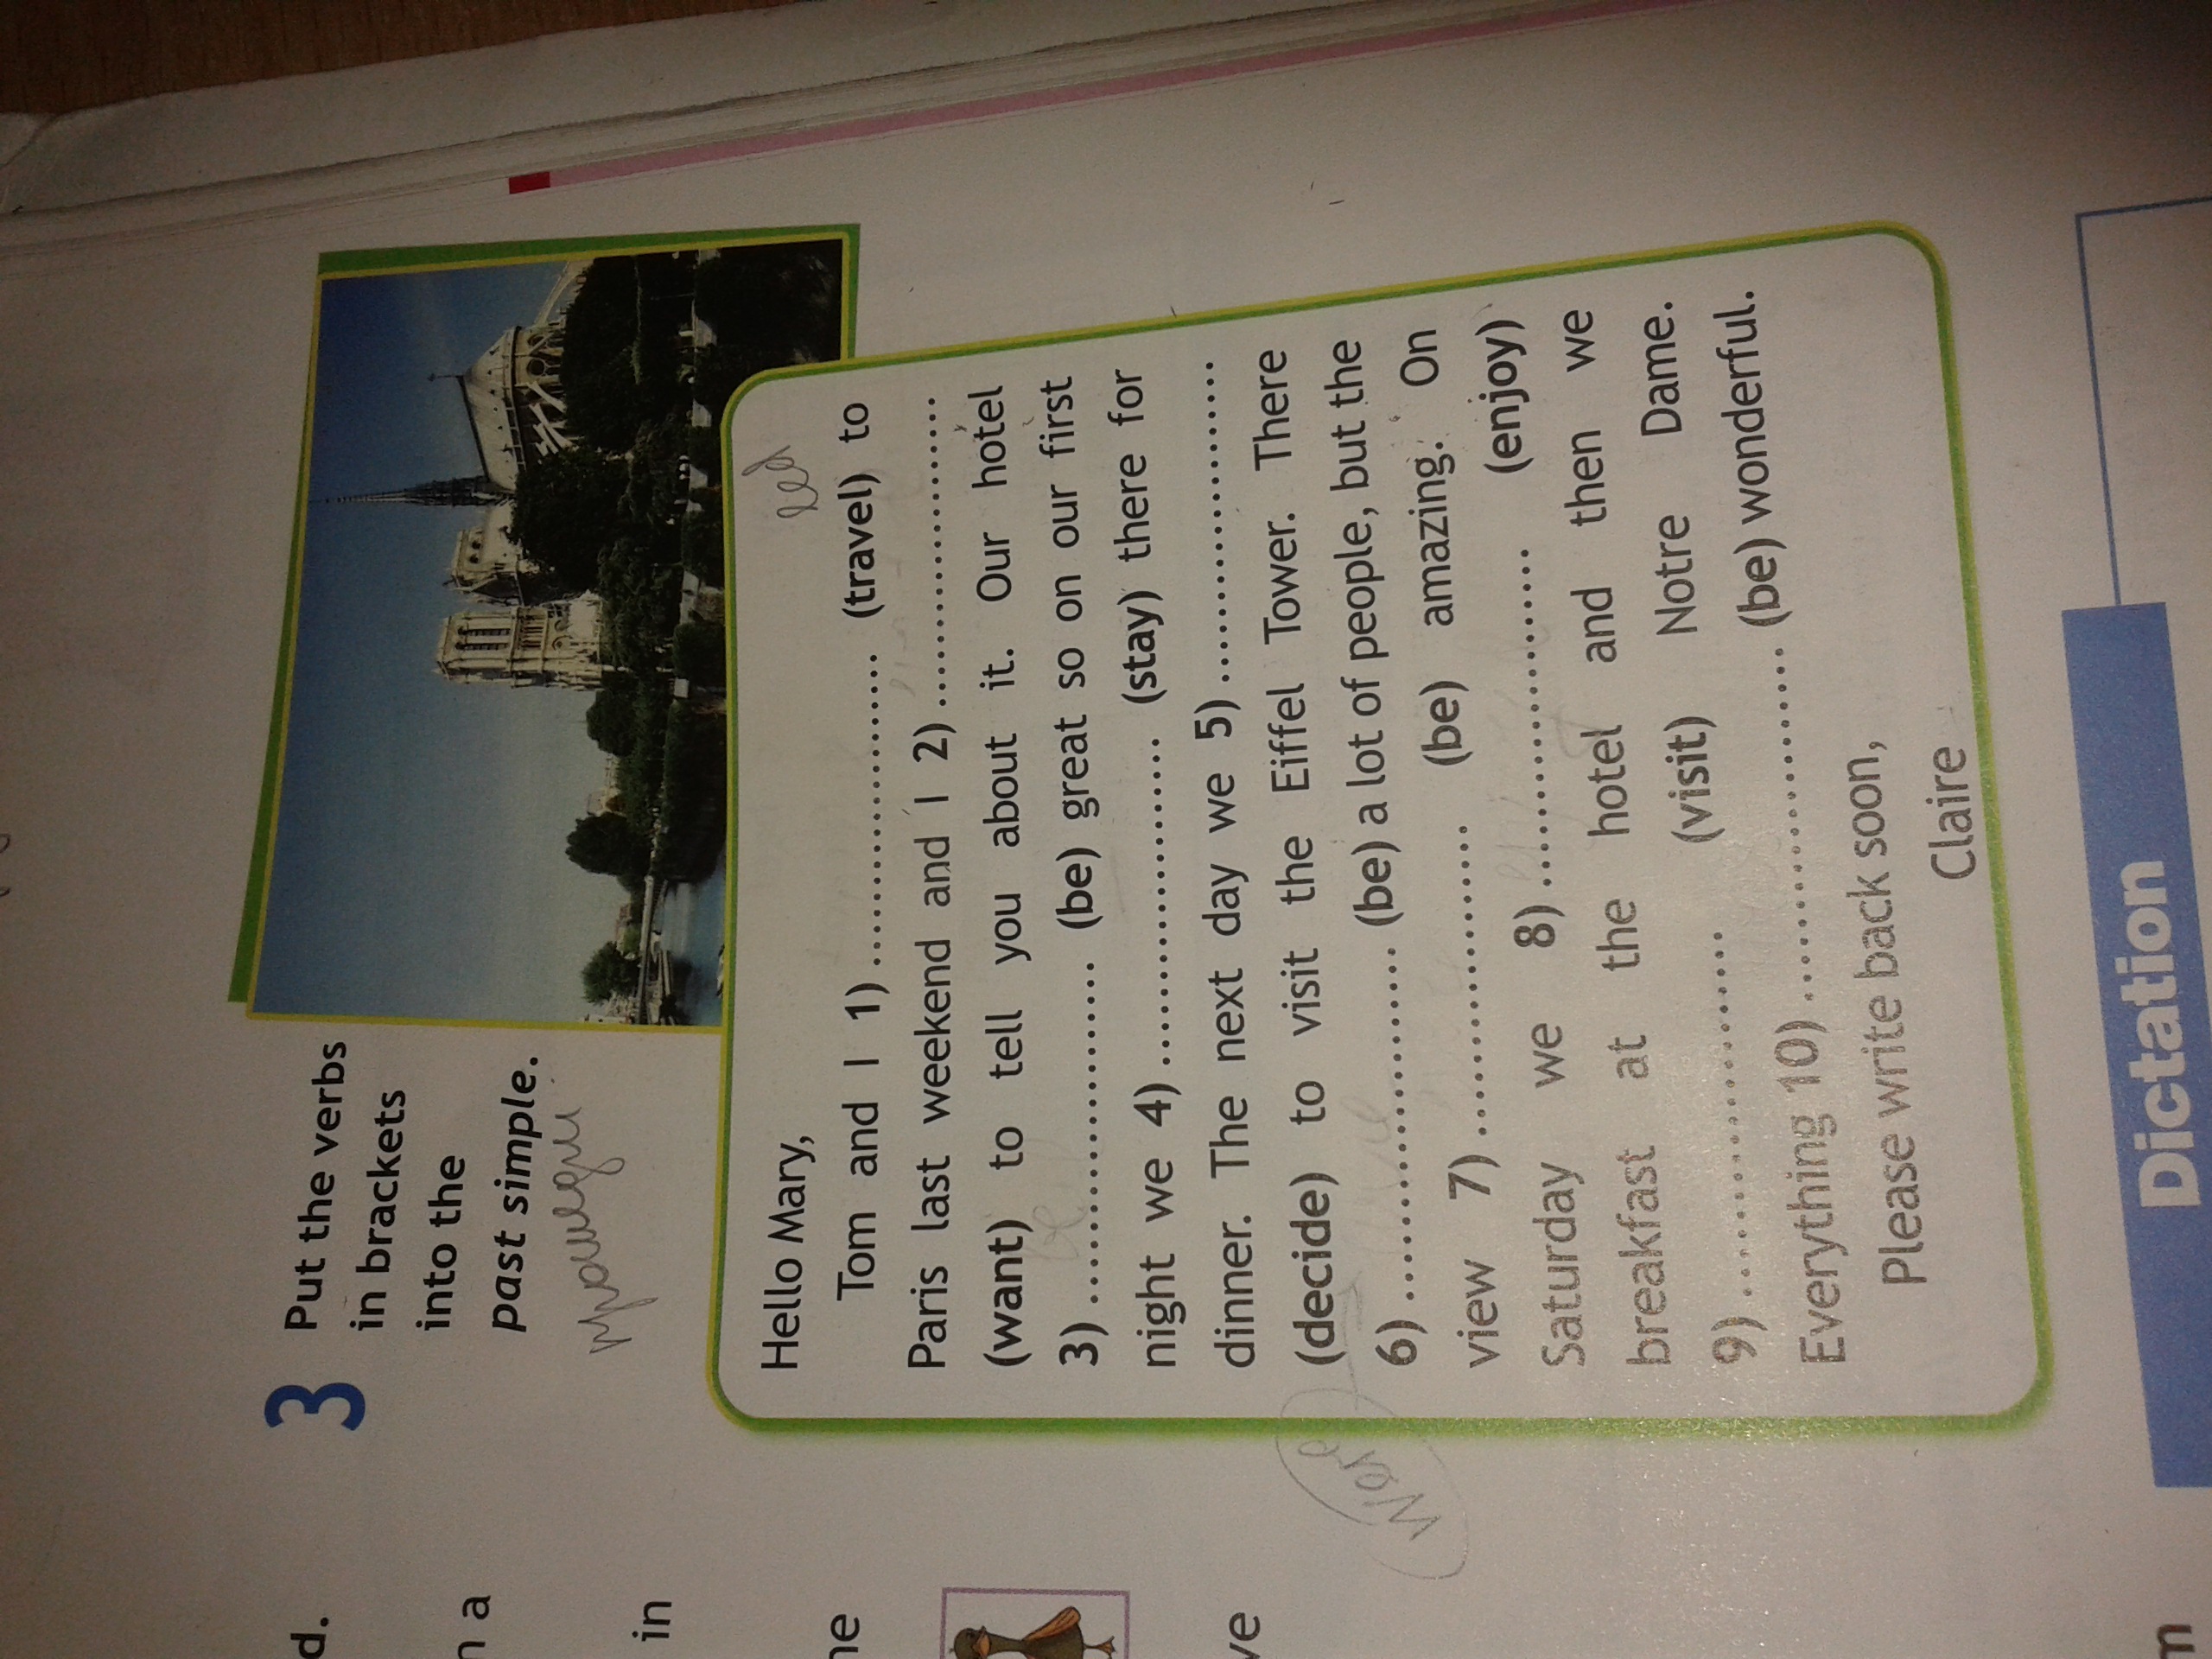 3 Put the verbs
in brackets
into the
past simple.
Hello Mary,
led
Tom and I 1) ........................ (travel) to
Paris last weekend and I 2) ........................
(want) to tell you about it. Our hotel
3) ........................ (be) great so on our first
night we 4) ........................ (stay) there for
dinner. The next day we 5) ........................
(decide) to visit the Eiffel Tower. There
6) ........................ (be) a lot of people, but the
view 7) ........................ (be) amazing. On
Saturday we 8) ........................ (enjoy)
breakfast at the hotel and then we
9) ........................ (visit) Notre Dame.
Everything 10) ........................ (be) wonderful.
Please write back soon,
Claire
were
Dictation
d.
n a
in
ne
ve